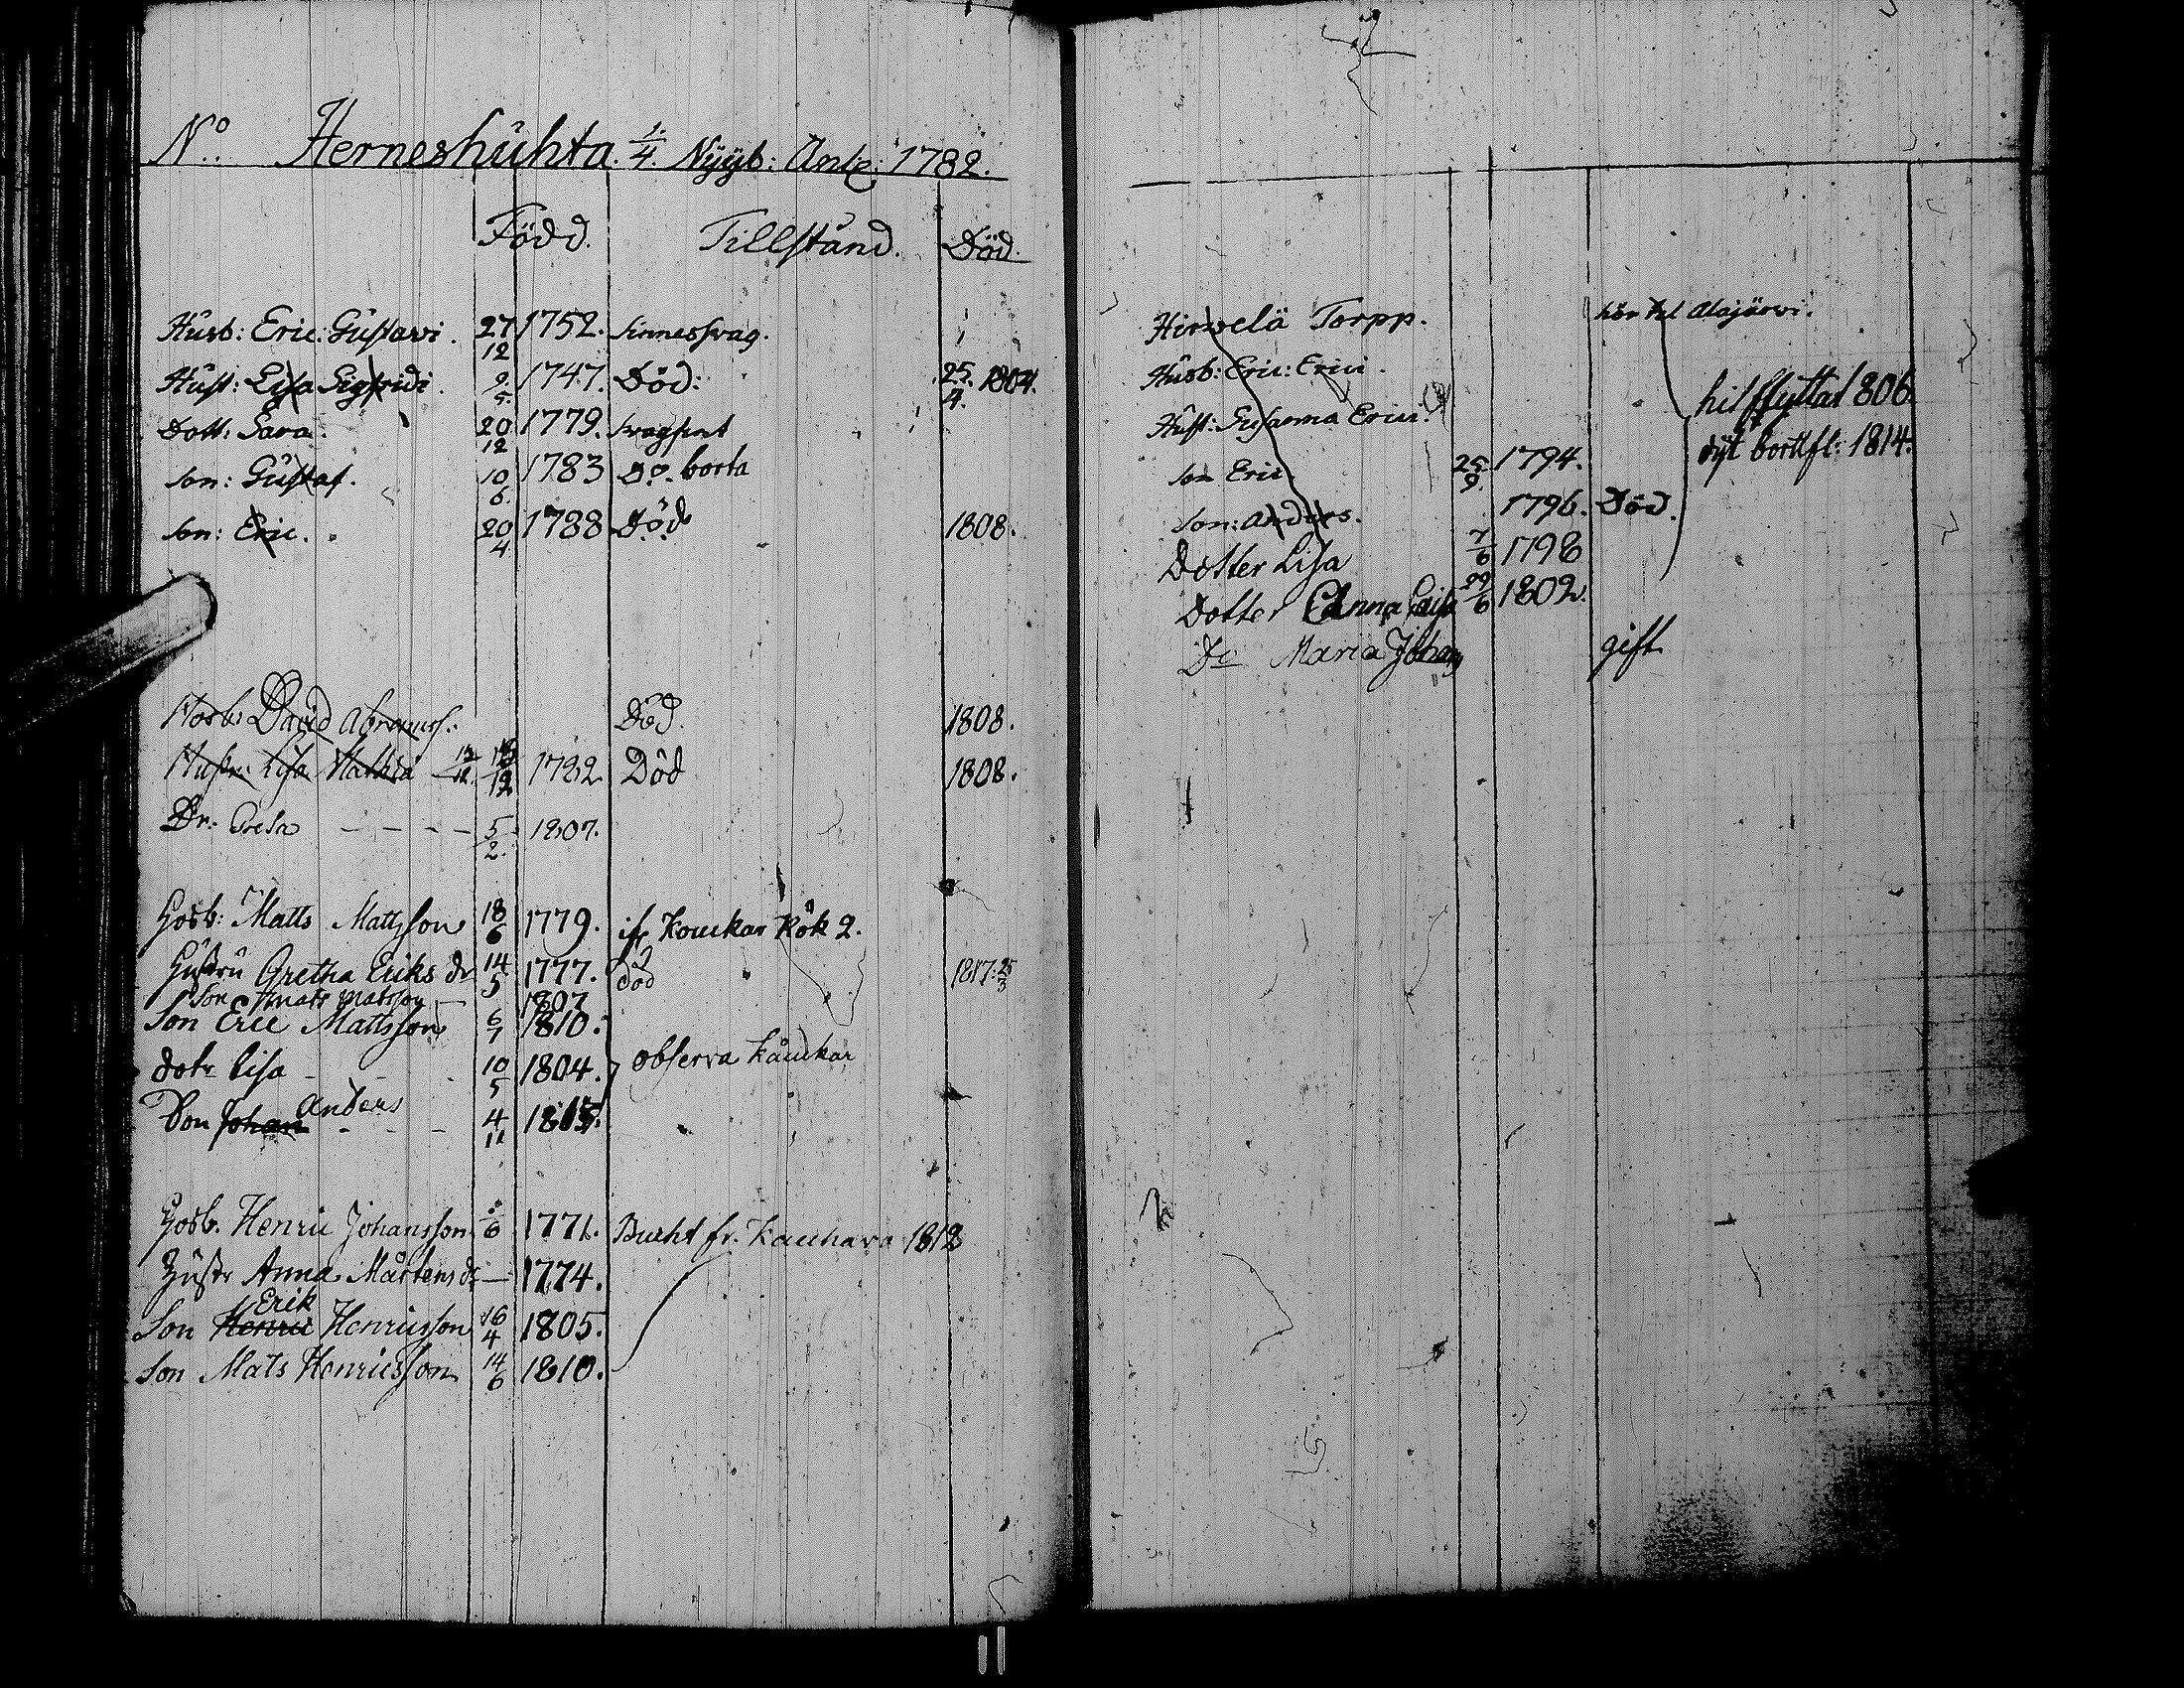 No. Herneshuhta. 1/4. Nyyb: Anl: 1782.
Född. Tillstånd. Död.
Husb: Eric: Gustavi. 27/12 1752. sinnessvag.
Hust: Lisa Sigfridi. 9/5. 1747. Död: 25/4. 1804.
Dott: Sara. 20/12 1779. svagsint
son: Gustaf. 10/6. 1783 Do. borta
son: Eric. 20/4 1788 Död 1808.
Hosb: David Abramss: Död. 1808.
Hustr: Lisa Mattsd 12/12 1782 Död 1808.
Dr. Greta - - - - 5/2. 1807.
Hosb: Matts Mattsson 18/6 1779. ifr Kouckar Rök 2.
Hustru Gretha Eriks dr 14/5 1777. död 1817: 25/3
Son Mats Matsson - 1807
Son Eric Mattsson 6/7 1810.
dotr Lisa - - - 10/5 1804. observa Kauckar
Anders
Son Johan - - - 4/11 1815.
Hosb. Henric Johansson 6 1771. Bucht fr. Kauhava 1812
Hustr Anna Mårtens dr — 1774.
Erik
Son Henric Henricsson 16/4 1805.
Son Mats Henricsson 14/6 1810.
Hirvelä Torpp. hör tel Alajärvi.
Husb: Eric: Erici.
Hust: Susanna Erici. hitflyttat 1806.
son Eric. 25/9. 1794. dyt bortfl: 1814.
son: Anders. 1796. Död.
Dotter Lisa 7/6 1798
Dotter Anna Caisa 29/6 1802.
Do Maria Johan gift